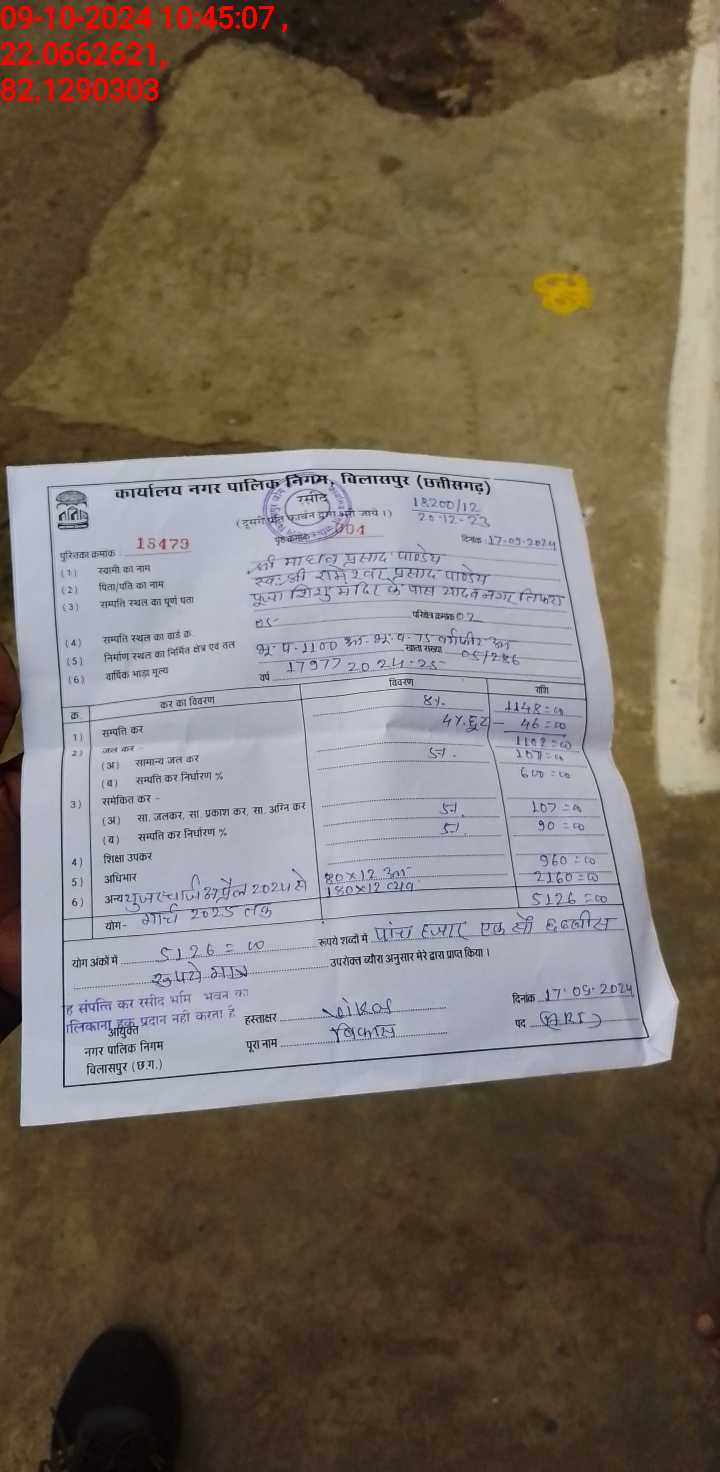 09-10-2024 10:45:07 ,
22.0662621,
82.1290303
कार्यालय नगर पालिक निगम, बिलासपुर (छत्तीसगढ़)
रसीद
18200/12
20-12-23
(दूसरी प्रति कार्बन द्वारा भरी जाये।)
पुस्तिका क्रमांक 18479 पृष्ठ क्रमांक 004 दिनांक 17-09-2024
(1) स्वामी का नाम श्री माधव प्रसाद पाण्डेय
(2) पिता/पति का नाम स्व. श्री रामेश्वर प्रसाद पाण्डेय
(3) सम्पत्ति स्थल का पूर्ण पता शिशु मंदिर के पास यादव नगर तिफरा
(4) सम्पत्ति स्थल का वार्ड क्र. 05 परिक्षेत्र क्रमांक 02
(5) निर्माण स्थल का निर्मित क्षेत्र एवं तल भू. प. 1100 आ. भू. प. 75 वर्गफीट
खाता संख्या 05/286
(6) वार्षिक भाड़ा मूल्य 17977 वर्ष 2024-25
क्र. कर का विवरण विवरण राशि
1) सम्पत्ति कर 8%. 1148=00
4%. छूट - 46=00
1102=00
2) जल कर -
(अ) सामान्य जल कर 107=00
(ब) सम्पत्ति कर निर्धारण % 600=00
3) समेकित कर -
(अ) सा. जलकर, सा. प्रकाश कर, सा. अग्नि कर
(ब) सम्पत्ति कर निर्धारण % 107=00
4) शिक्षा उपकर 90=00
5) अधिभार 960=00
6) अन्य यूजर चार्ज अप्रैल 2024 से 80x12 180x12 2160=00
मार्च 2025 तक
योग- 5126=00
योग अंकों में 5126=00 रूपये शब्दों में पांच हजार एक सौ छब्बीस
रूपये मात्र उपरोक्त ब्यौरा अनुसार मेरे द्वारा प्राप्त किया।
ह संपत्ति कर रसीद भूमि भवन का
लिकाना हक प्रदान नहीं करता है
आयुक्त
नगर पालिक निगम
बिलासपुर (छ.ग.)
हस्ताक्षर
दिनांक 17.09.2024
पूरा नाम विकास
पद (ARI)